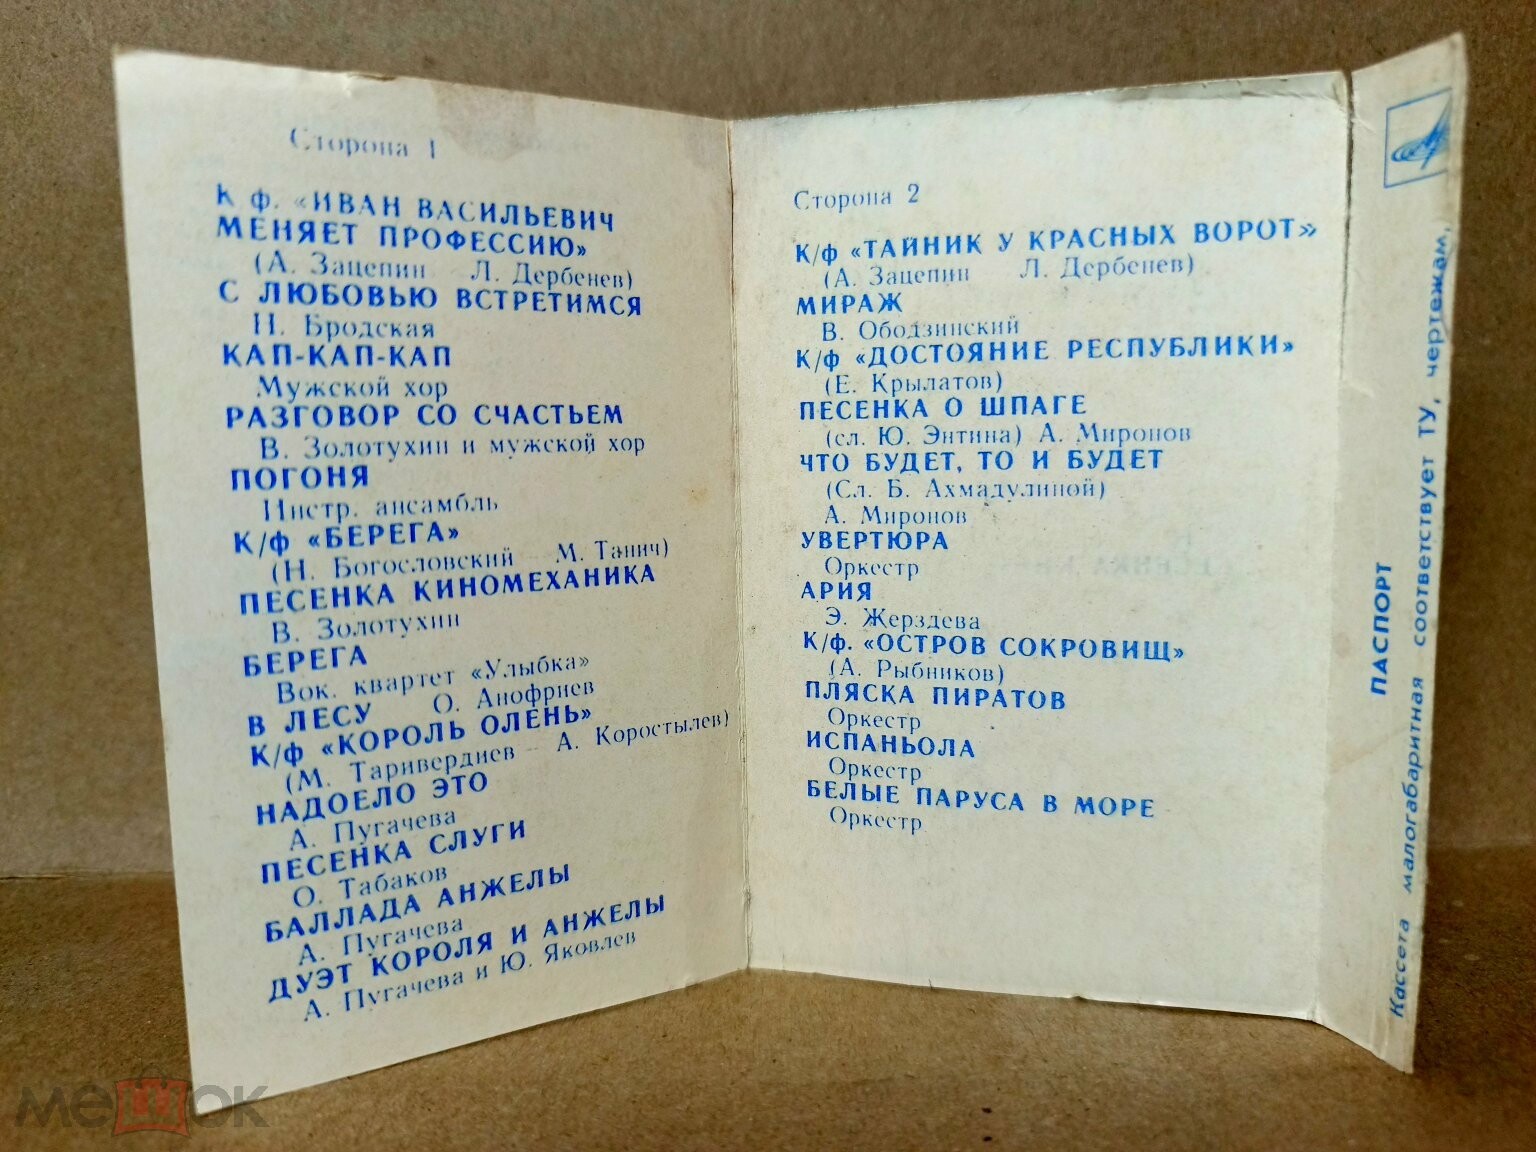 Сторона 1
К ф. «ИВАН ВАСИЛЬЕВИЧ
МЕНЯЕТ ПРОФЕССИЮ»
(А. Зацепин Л. Дербенев)
С ЛЮБОВЬЮ ВСТРЕТИМСЯ
Н. Бродская
КАП-КАП-КАП
Мужской хор
РАЗГОВОР СО СЧАСТЬЕМ
В. Золотухин и мужской хор
ПОГОНЯ
Инстр. ансамбль
К/ф «БЕРЕГА»
(Н. Богословский М. Танич)
ПЕСЕНКА КИНОМЕХАНИКА
В. Золотухин
БЕРЕГА
Вок. квартет «Улыбка»
В ЛЕСУ О. Анофриев
К/ф «КОРОЛЬ ОЛЕНЬ»
(М. Таривердиев – А. Коростылев)
НАДОЕЛО ЭТО
А. Пугачева
ПЕСЕНКА СЛУГИ
О. Табаков
БАЛЛАДА АНЖЕЛЫ
А. Пугачева
ДУЭТ КОРОЛЯ И АНЖЕЛЫ
А. Пугачева и Ю. Яковлев
Сторона 2
К/ф «ТАЙНИК У КРАСНЫХ ВОРОТ»
(А. Зацепин Л. Дербенев)
МИРАЖ
В. Ободзинский
К/ф «ДОСТОЯНИЕ РЕСПУБЛИКИ»
(Е. Крылатов)
ПЕСЕНКА О ШПАГЕ
(сл. Ю. Энтина) А. Миронов
ЧТО БУДЕТ, ТО И БУДЕТ
(Сл. Б. Ахмадулиной)
А. Миронов
УВЕРТЮРА
Оркестр
АРИЯ
Э. Жерздева
К/ф. «ОСТРОВ СОКРОВИЩ»
(А. Рыбников)
ПЛЯСКА ПИРАТОВ
Оркестр
ИСПАНЬОЛА
Оркестр
БЕЛЫЕ ПАРУСА В МОРЕ
Оркестр
ПАСПОРТ
Кассета малогабаритная соответствует ТУ, чертежам,
мешок